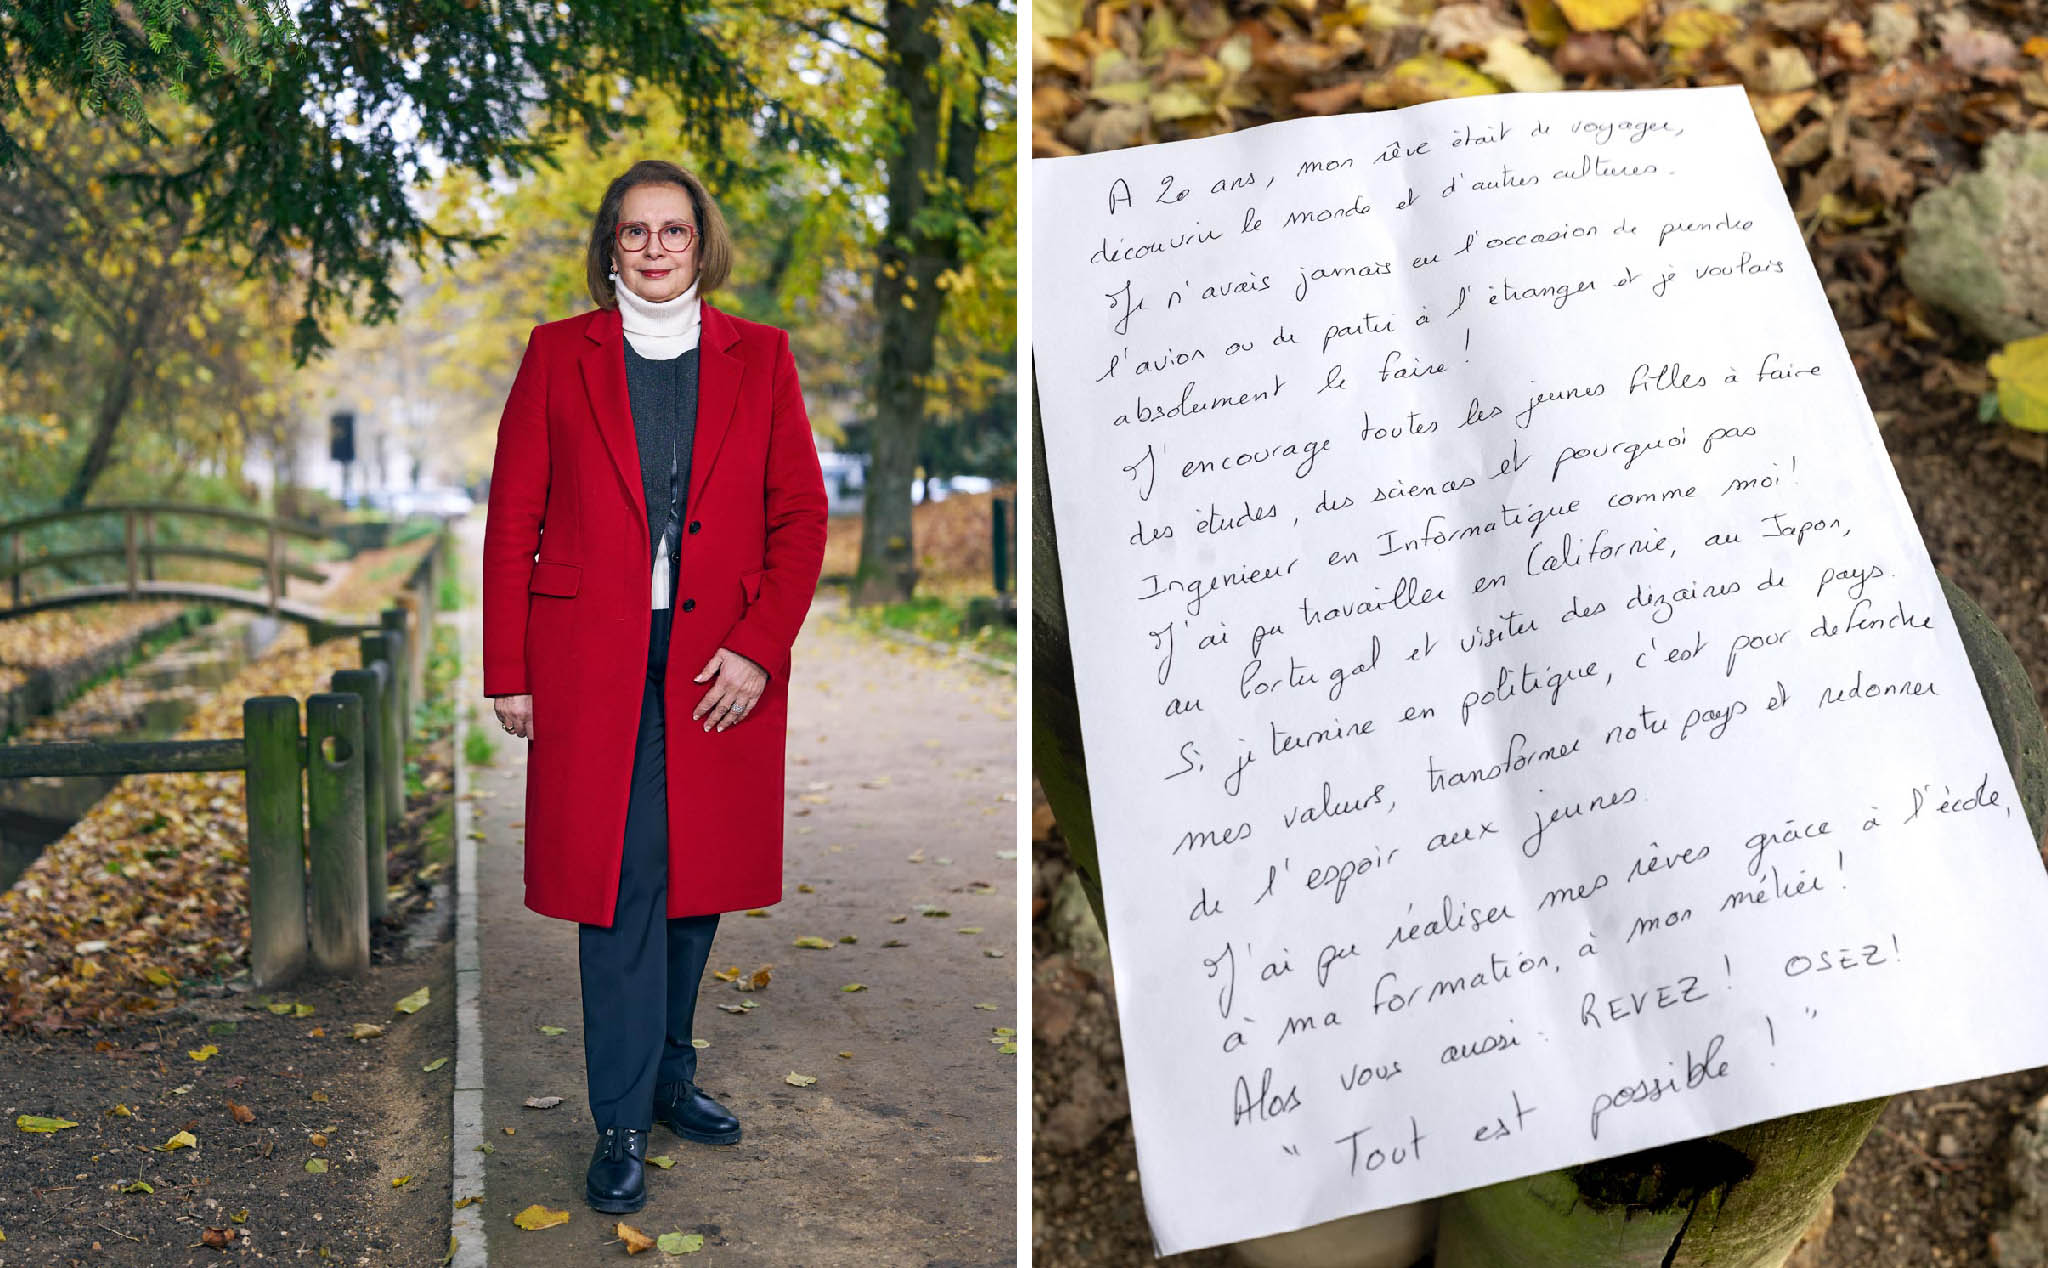 A 20 ans, mon rêve était de voyager,
découvrir le monde et d'autres cultures.
Je n'avais jamais eu l'occasion de prendre
l'avion ou de partir à l'étranger et je voulais
absolument le faire !
J'encourage toutes les jeunes filles à faire
des études, des sciences et pourquoi pas
Ingénieur en Informatique comme moi !
J'ai pu travailler en Californie, au Japon,
au Portugal et visiter des dizaines de pays.
Si je termine en politique, c'est pour défendre
mes valeurs, transformer notre pays et redonner
de l'espoir aux jeunes.
J'ai pu réaliser mes rêves grâce à l'école,
à ma formation, à mon métier !
Alors vous aussi : REVEZ ! OSEZ !
" Tout est possible ! "